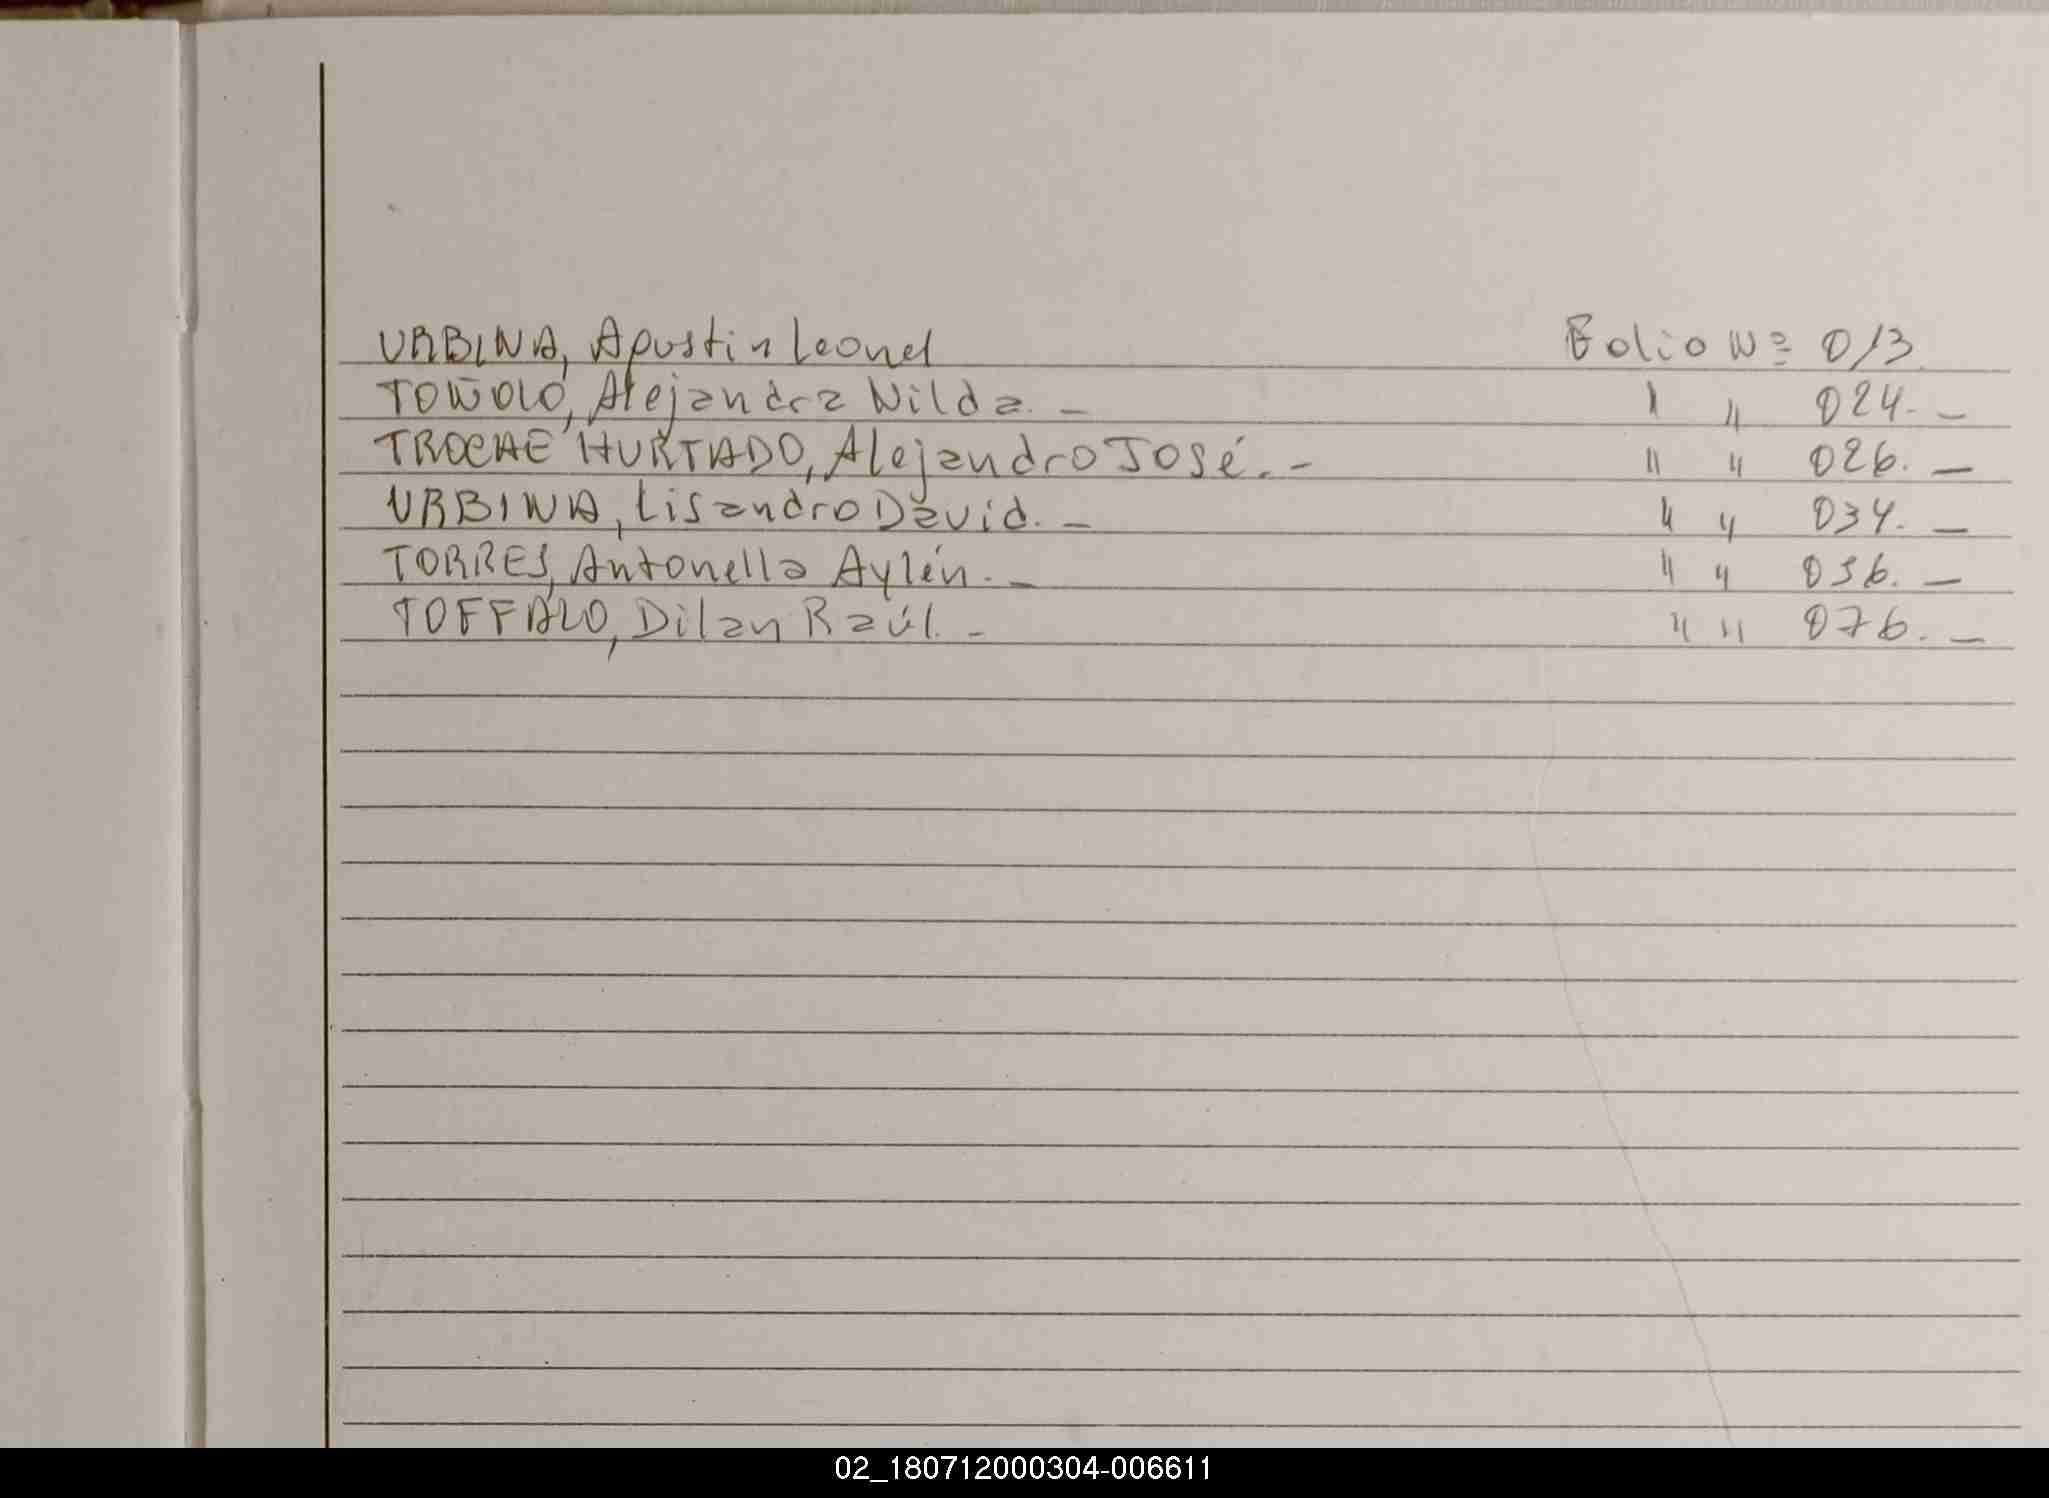 URBINA, Agustin Leonel Folio Nº 013.
TOÑOLO, Alejandra Nilda. - " " 024. -
TROCHE HURTADO, Alejandro José. - " " 026. -
URBINA, Lisandro David. - " " 034. -
TORRES, Antonella Aylén. - " " 036. -
TOFFALO, Dilan Raúl. - " " 076. -
02_180712000304-006611